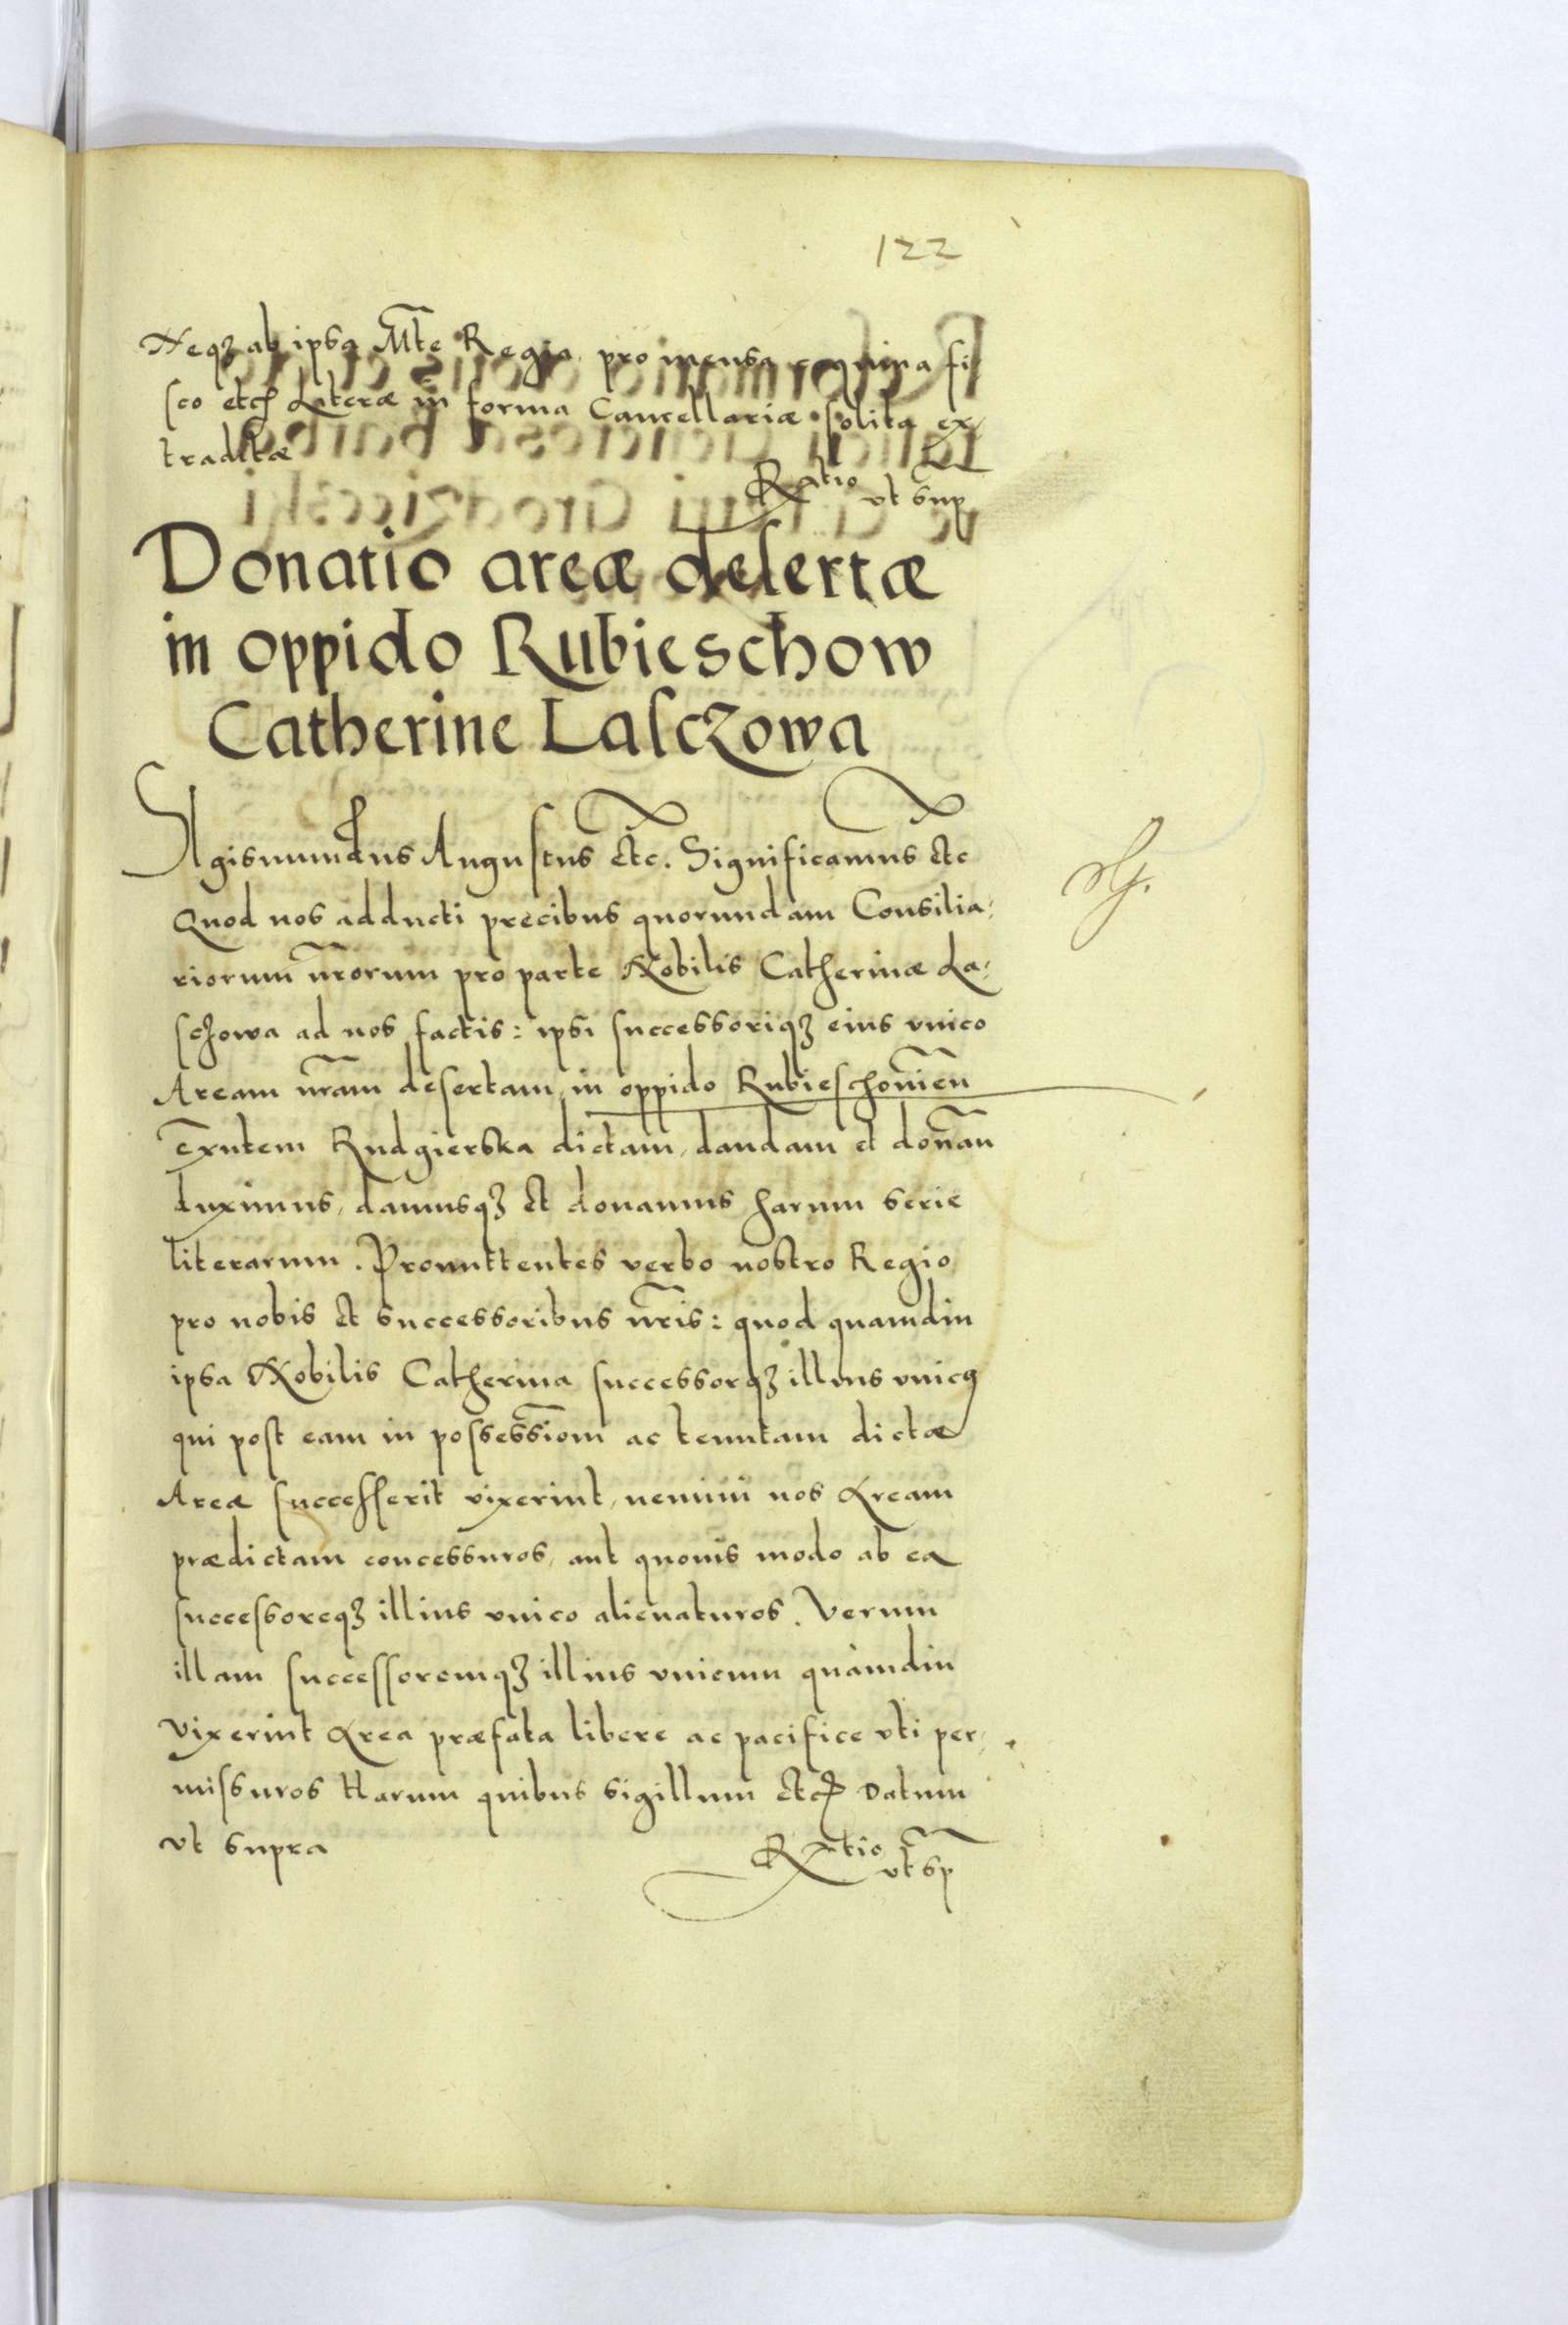 122
Neqz ab ipsa Mte Regia, pro mensa equina fi
sco etc Literæ in forma Cancellariæ solita ex
traditæ
Ratio ut sup
Donatio areæ desertæ
in oppido Rubieschow
Catherine Lasczowa
Sigismundus Augustus etc. Significamus etc
Quod nos adducti precibus quorundam Consilia:
riorum nrorum pro parte Nobilis Catherinæ La:
schowa ad nos factis: ipsi successoriqz eius vnico
Aream nram desertam in oppido Rubieschowien
Exntem Rudgierska dictam, dandam et donan
duximus, damusqz et donamus harum serie
literarum. Promittentes verbo nostro Regio
pro nobis et successoribus nris: quod quamdiu
ipsa Nobilis Catherina successorqz illius vnicq
qui post eam in possessiom ac tenutam dictæ
Areæ successerit vixerint, nemini nos Aream
prædictam concessuros, aut quovis modo ab ea
successoreqz illius vnico alienaturos. Verum
illam successoremqz illius vnicum quàmdiu
vixerint Area præfata libere ac pacifice vti per
missuros Harum quibus sigillum etc Datum
vt supra
Ratio vt sp